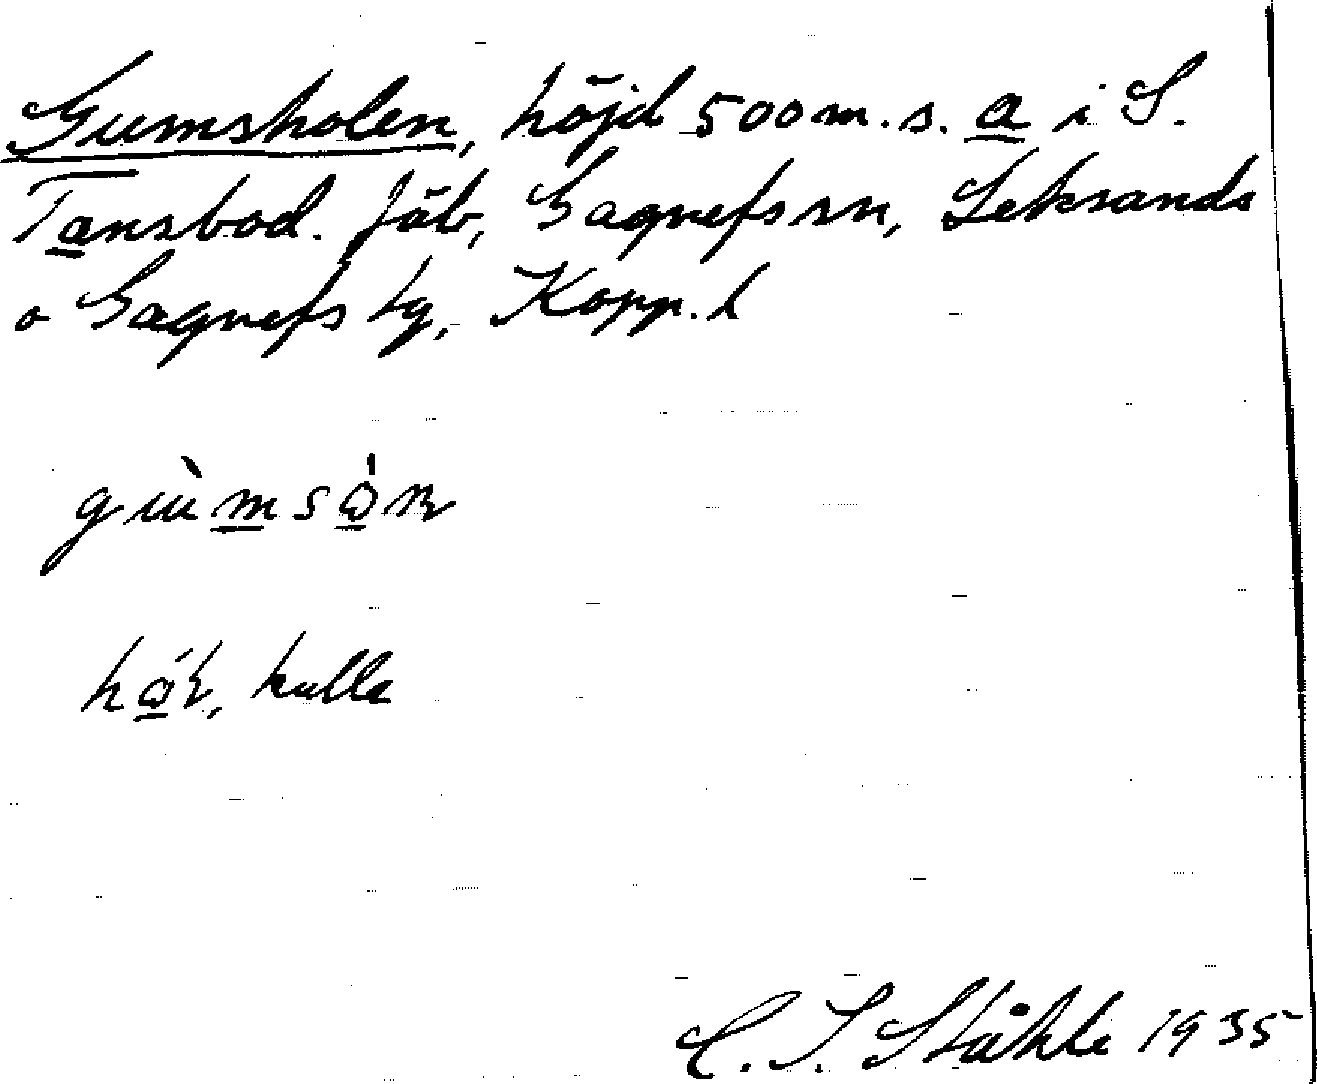 Gumsholen, höjd 500 m. s. a i S.
Tansbod. fäb, Gagnefs sn, Leksands
o Gagnefs tg, Kopp. l
kulle
C. I. Ståhle 1935